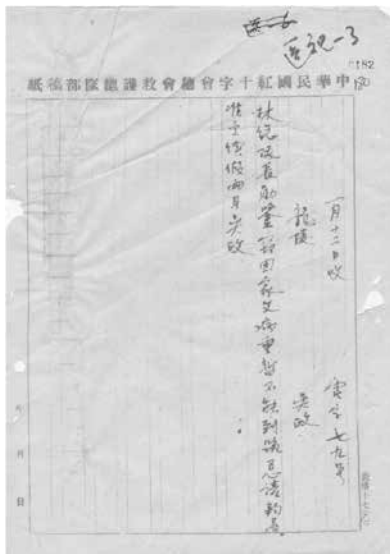 医视-3
0182
180
中華民國紅十字會總會救護總隊部稿紙
一月十二日收 電字七九号
龍陵 吳政
林總隊長勛鑒：職因家父病重暫不能到筑
准予續假兩月吳政
年 月 日